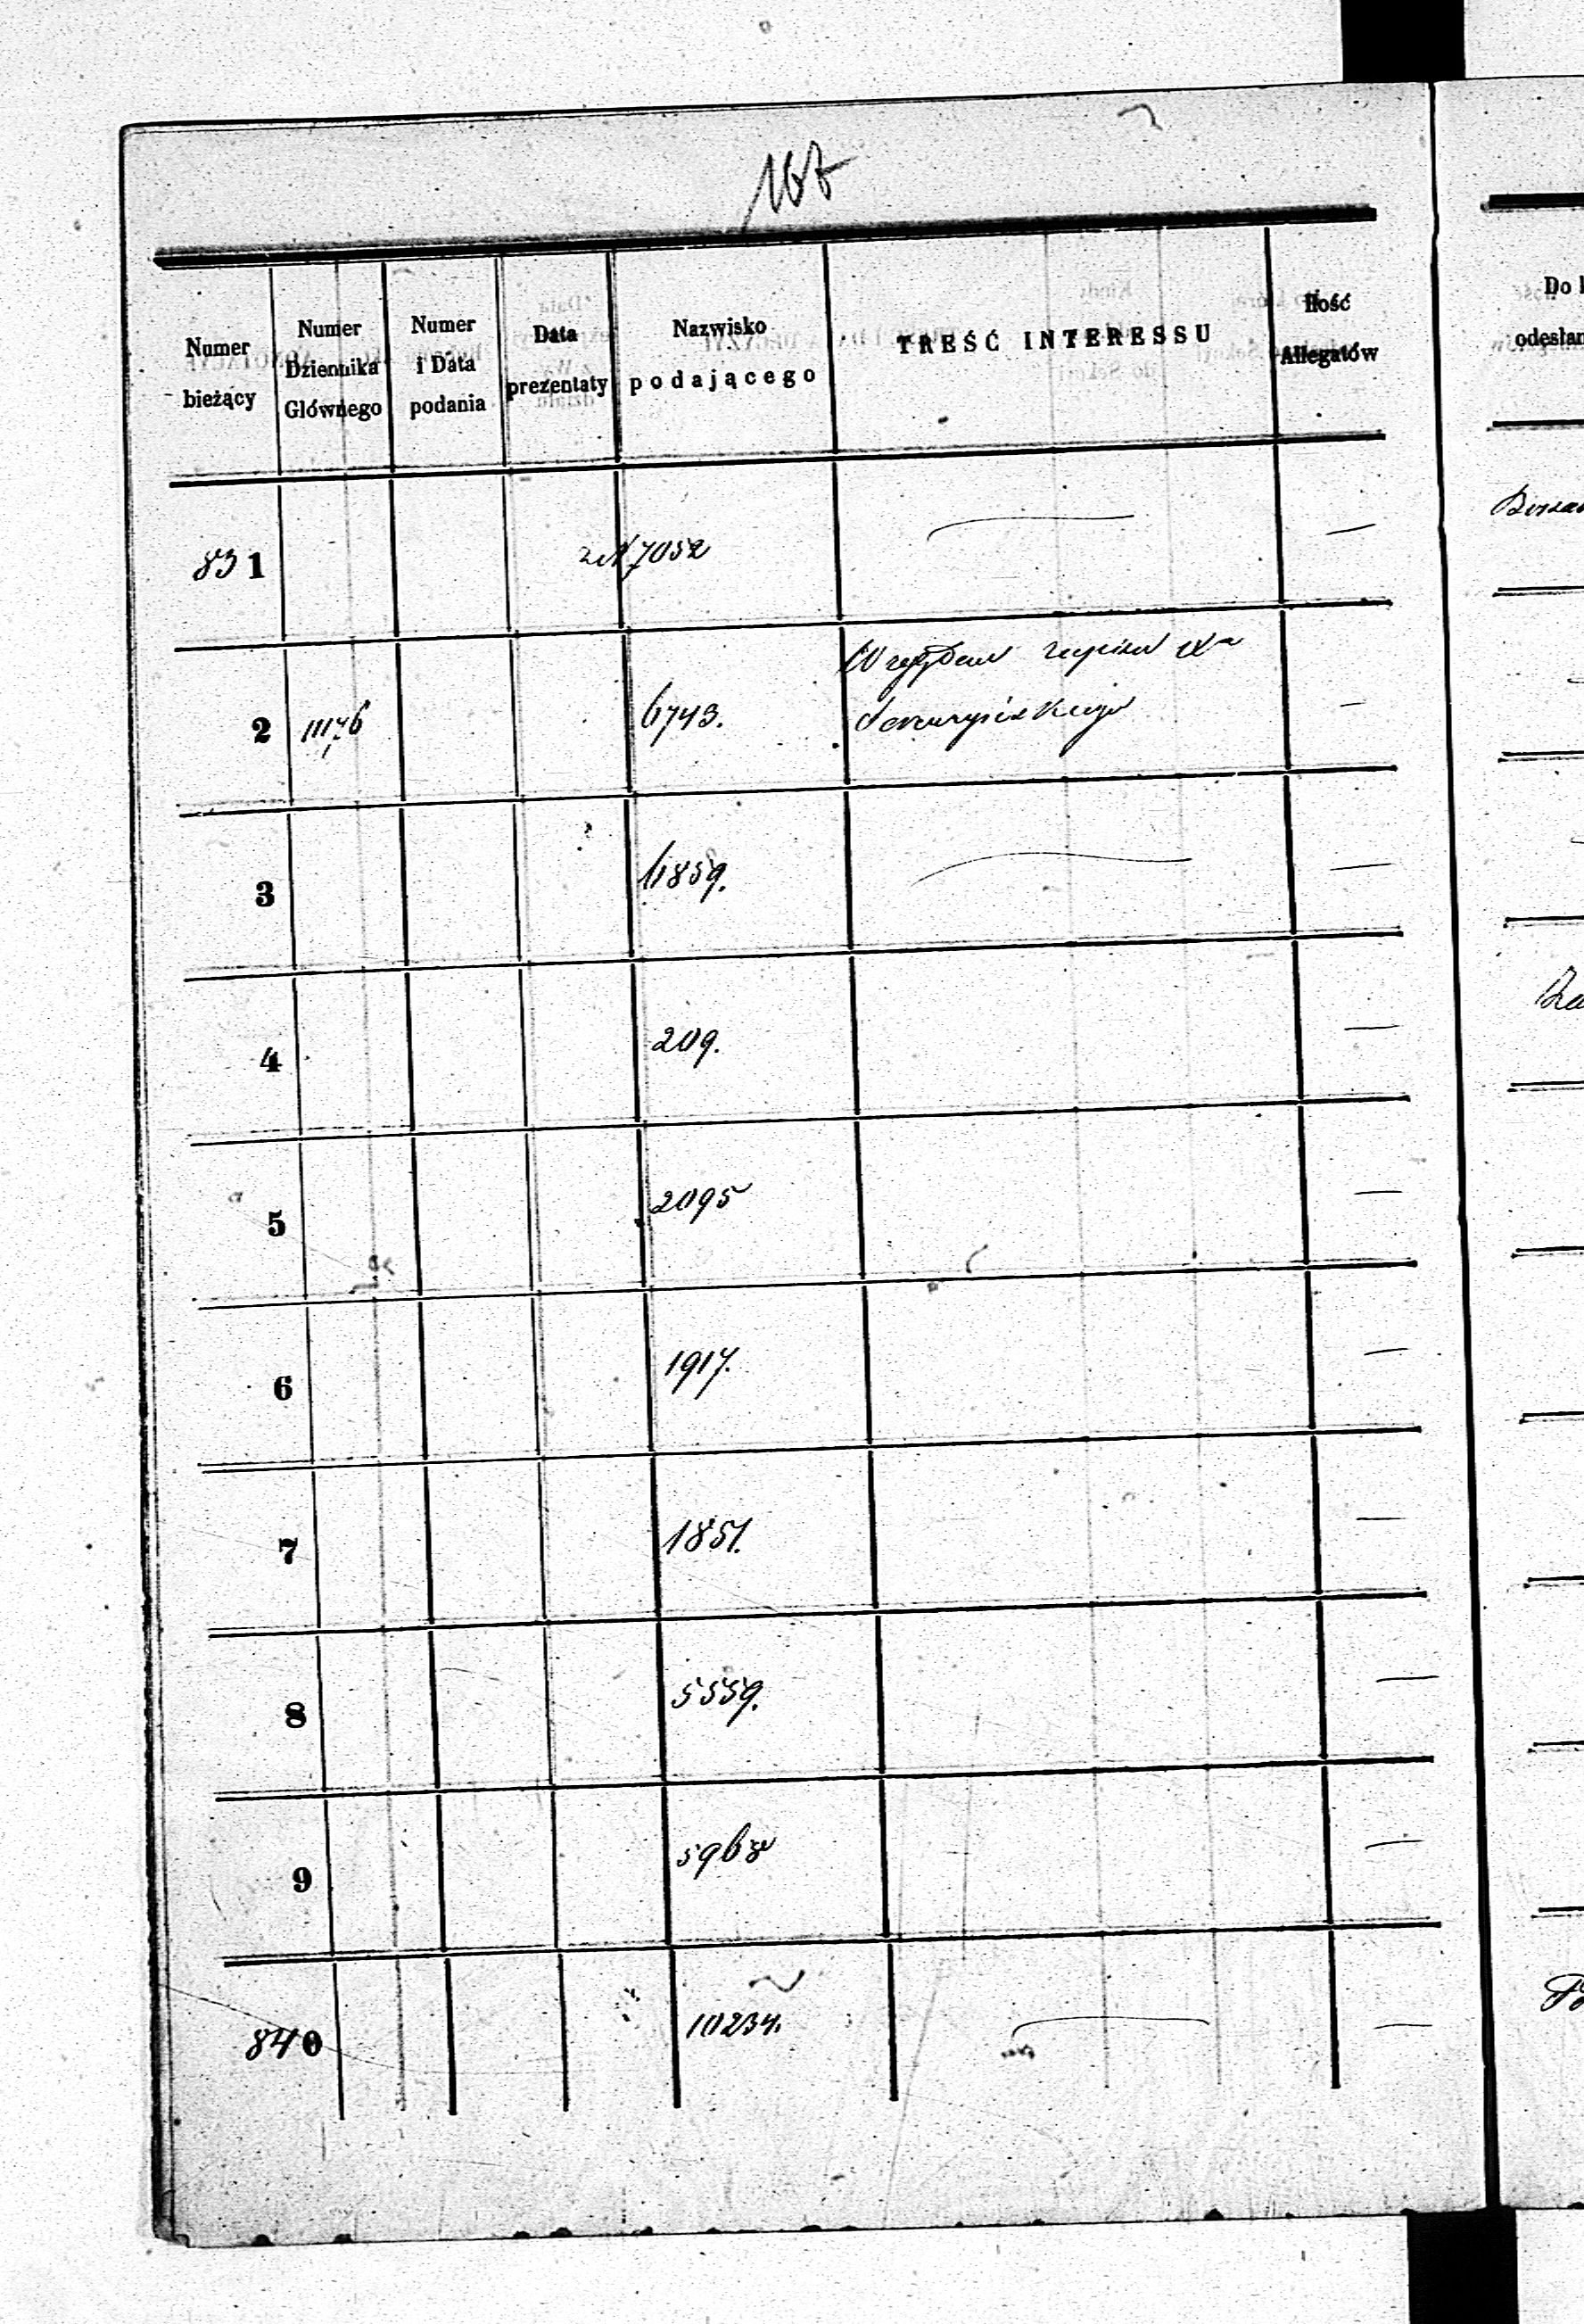 167
Numer bieżący
Numer Dziennika Głównego
Numer i Data podania
Data prezentaty
Nazwisko podającego
TREŚĆ INTERESSU
Ilość Allegatów
Do
odesłan
831 z N 7052
2 11176 6743.
3 6859.
4 209.
5 2095
6 1917.
7 1851.
8 5559.
9 596
840 10234.